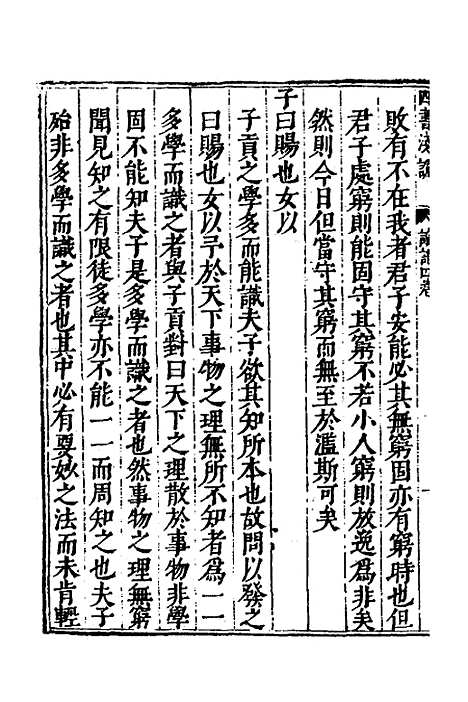 四書淺說 論語四卷
敗有不在我者君子安能必其無窮困亦有窮時也但
君子處窮則能固守其窮不若小人窮則放逸為非矣
然則今日但當守其窮而無至於濫斯可矣
子曰賜也女以
子貢之學多而能識夫子欲其知所本也故問以發之
曰賜也女以予於天下事物之理無所不知者為一一
多學而識之者與子貢對曰天下之理散於事物非學
固不能知夫子是多學而識之者也然事物之理無窮
聞見知之有限徒多學亦不能一一而周知之也夫子
殆非多學而識之者也其中必有要妙之法而未肯輕